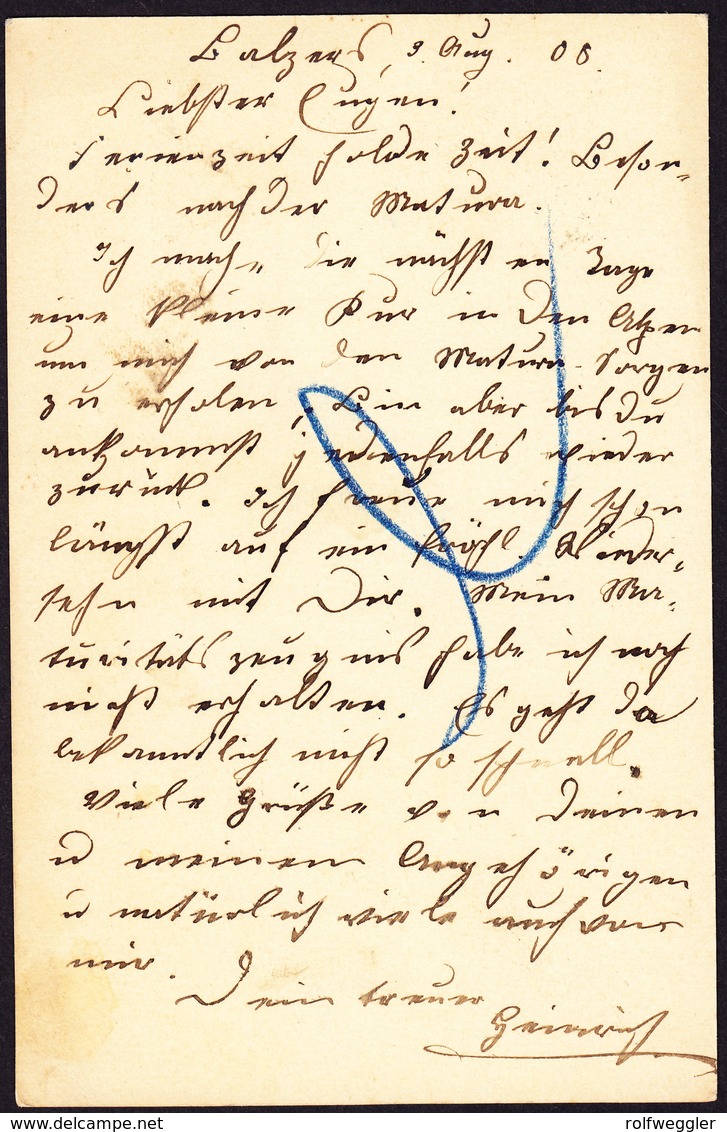 Balzers, 3. Aug. 00.
Liebster Eugen!
Ferienzeit holde Zeit! Beson-
ders nach der Matura.
Ich mache die nächsten Tage
eine kleine Kur in den Alpen
um mich von den Matura-Sorgen
zu erholen, bin aber bis Du
ankommst jedenfalls wieder
zurück. Ich freue mich schon
längst auf ein fröhl. Wieder-
sehn mit Dir. Mein Ma-
turitätszeugnis habe ich noch
nicht erhalten. Es geht da
bekanntlich nicht so schnell.
Viele Grüße von Deinen
u meinen Angehörigen
u natürlich viele auch von
mir.
Dein treuer
Heinrich.
delcampe.net
rolfweggler